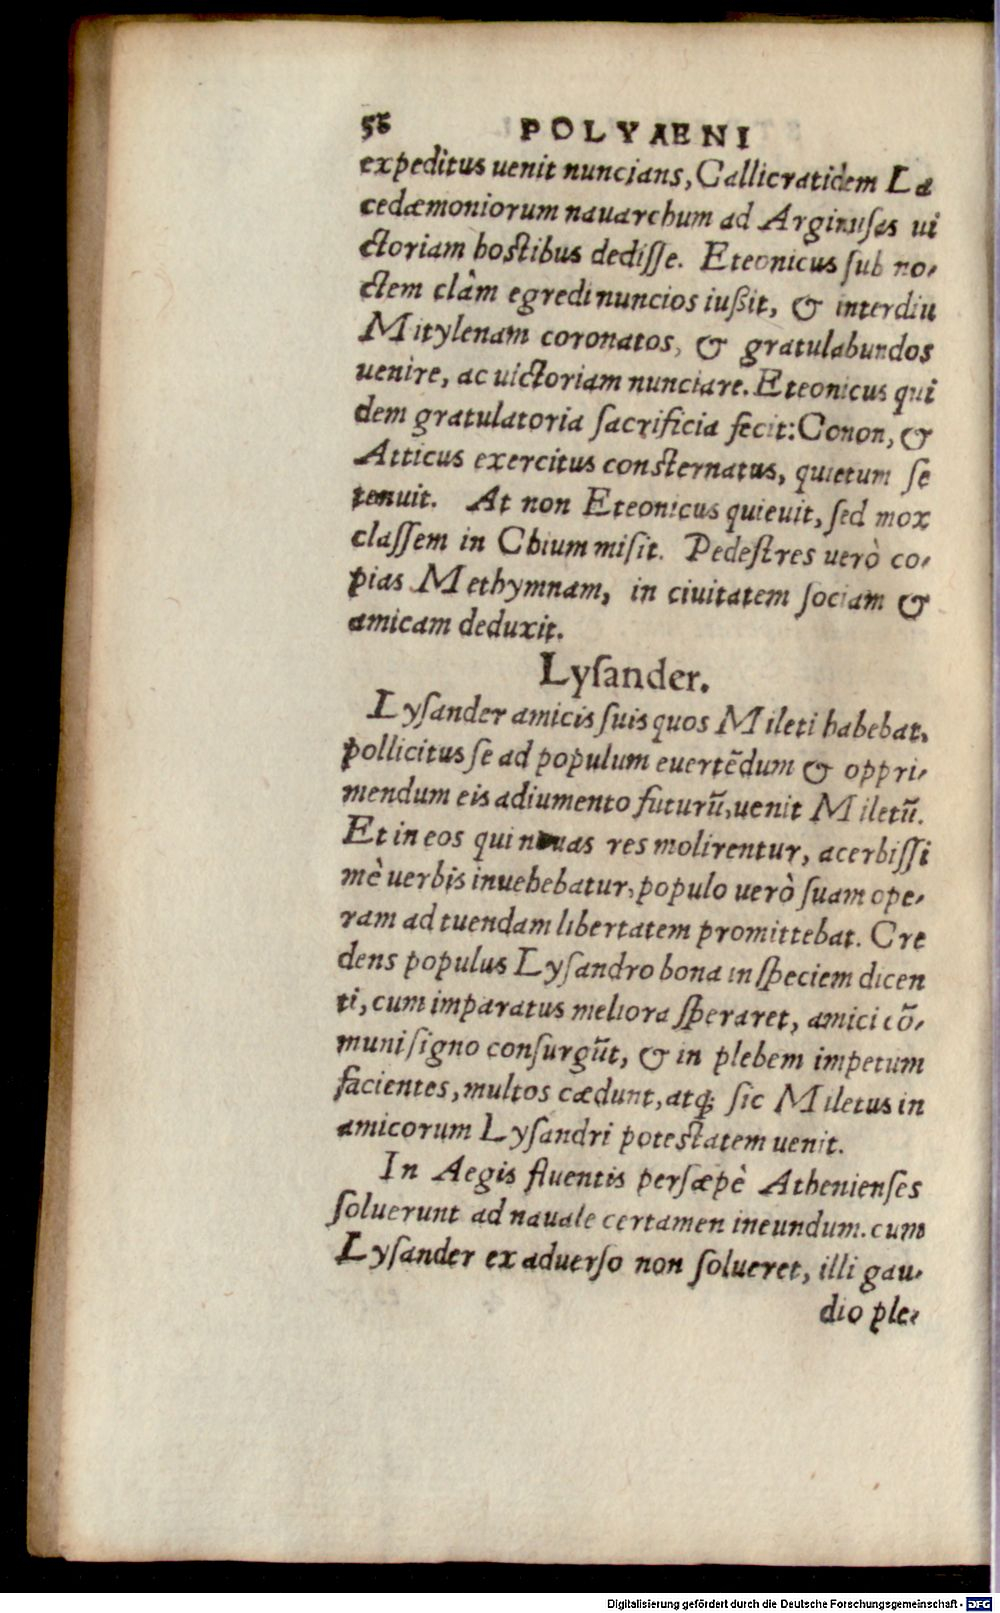 56 POLYAENI
expeditus uenit nuncians, Callicratidem La
cedæmoniorum nauarchum ad Arginusas ui
ctoriam hostibus dedisse. Eteonicus sub no-
ctem clàm egredi nuncios iußit, & interdiu
Mitylenam coronatos, & gratulabundos
uenire, ac uictoriam nunciare. Eteonicus qui
dem gratulatoria sacrificia fecit: Conon, &
Atticus exercitus consternatus, quietum se
tenuit. At non Eteonicus quieuit, sed mox
classem in Chium misit. Pedestres uerò co-
pias Methymnam, in ciuitatem sociam &
amicam deduxit.
Lysander.
Lysander amicis suis quos Mileti habebat,
pollicitus se ad populum euertẽdum & oppri-
mendum eis adiumento futurũ, uenit Miletũ.
Et in eos qui nouas res molirentur, acerbissi
mè uerbis inuehebatur, populo uerò suam ope-
ram ad tuendam libertatem promittebat. Cre
dens populus Lysandro bona in speciem dicen
ti, cum imparatus meliora speraret, amici cõ-
muni signo consurgũt, & in plebem impetum
facientes, multos cædunt, atq; sic Miletus in
amicorum Lysandri potestatem uenit.
In Aegis fluentis persæpè Athenienses
soluerunt ad nauale certamen ineundum. cum
Lysander ex aduerso non solueret, illi gau-
dio ple-
Digitalisierung gefördert durch die Deutsche Forschungsgemeinschaft - DFG